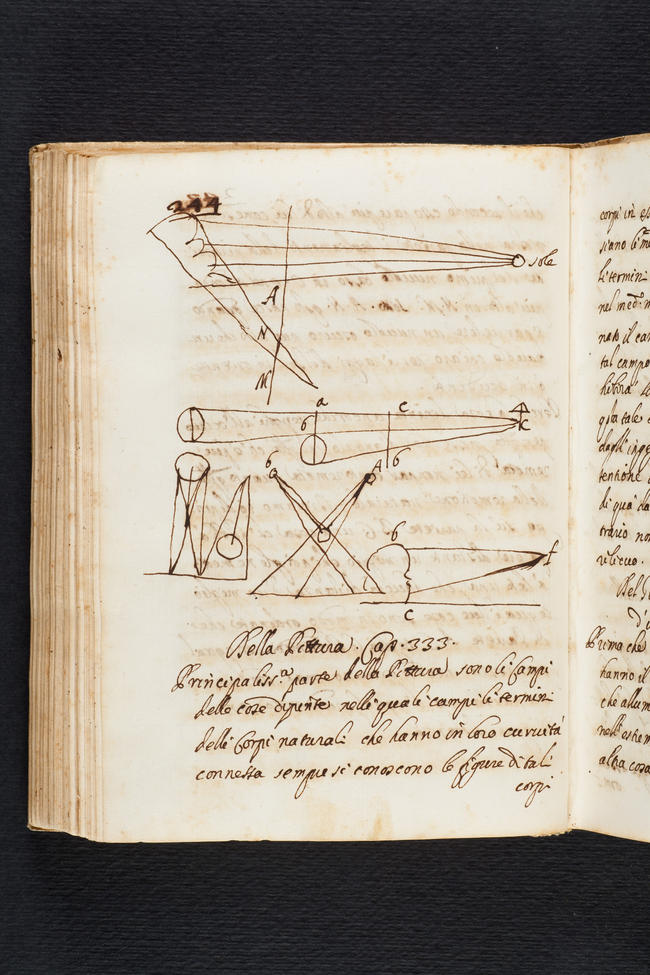 244
sole
A
N
M
a
c
b
b
b
A
b
c
f
Della Pittura. Cap. 333.
Principaliss.ª parte della Pittura sono li Campi
delle cose dipinte nelli quali campi li termini
delli Corpi naturali che hanno in loro curvità
connessa sempre si conoscono le figure di tali
corpi
corpi in es
siano le me
li termini
nato il cam
tal campo
qta tale
dagli inge
tentione
di qua da
travio non
rilievo.
Prima che
hanno il
che allum
nell'estrem
altra cosa